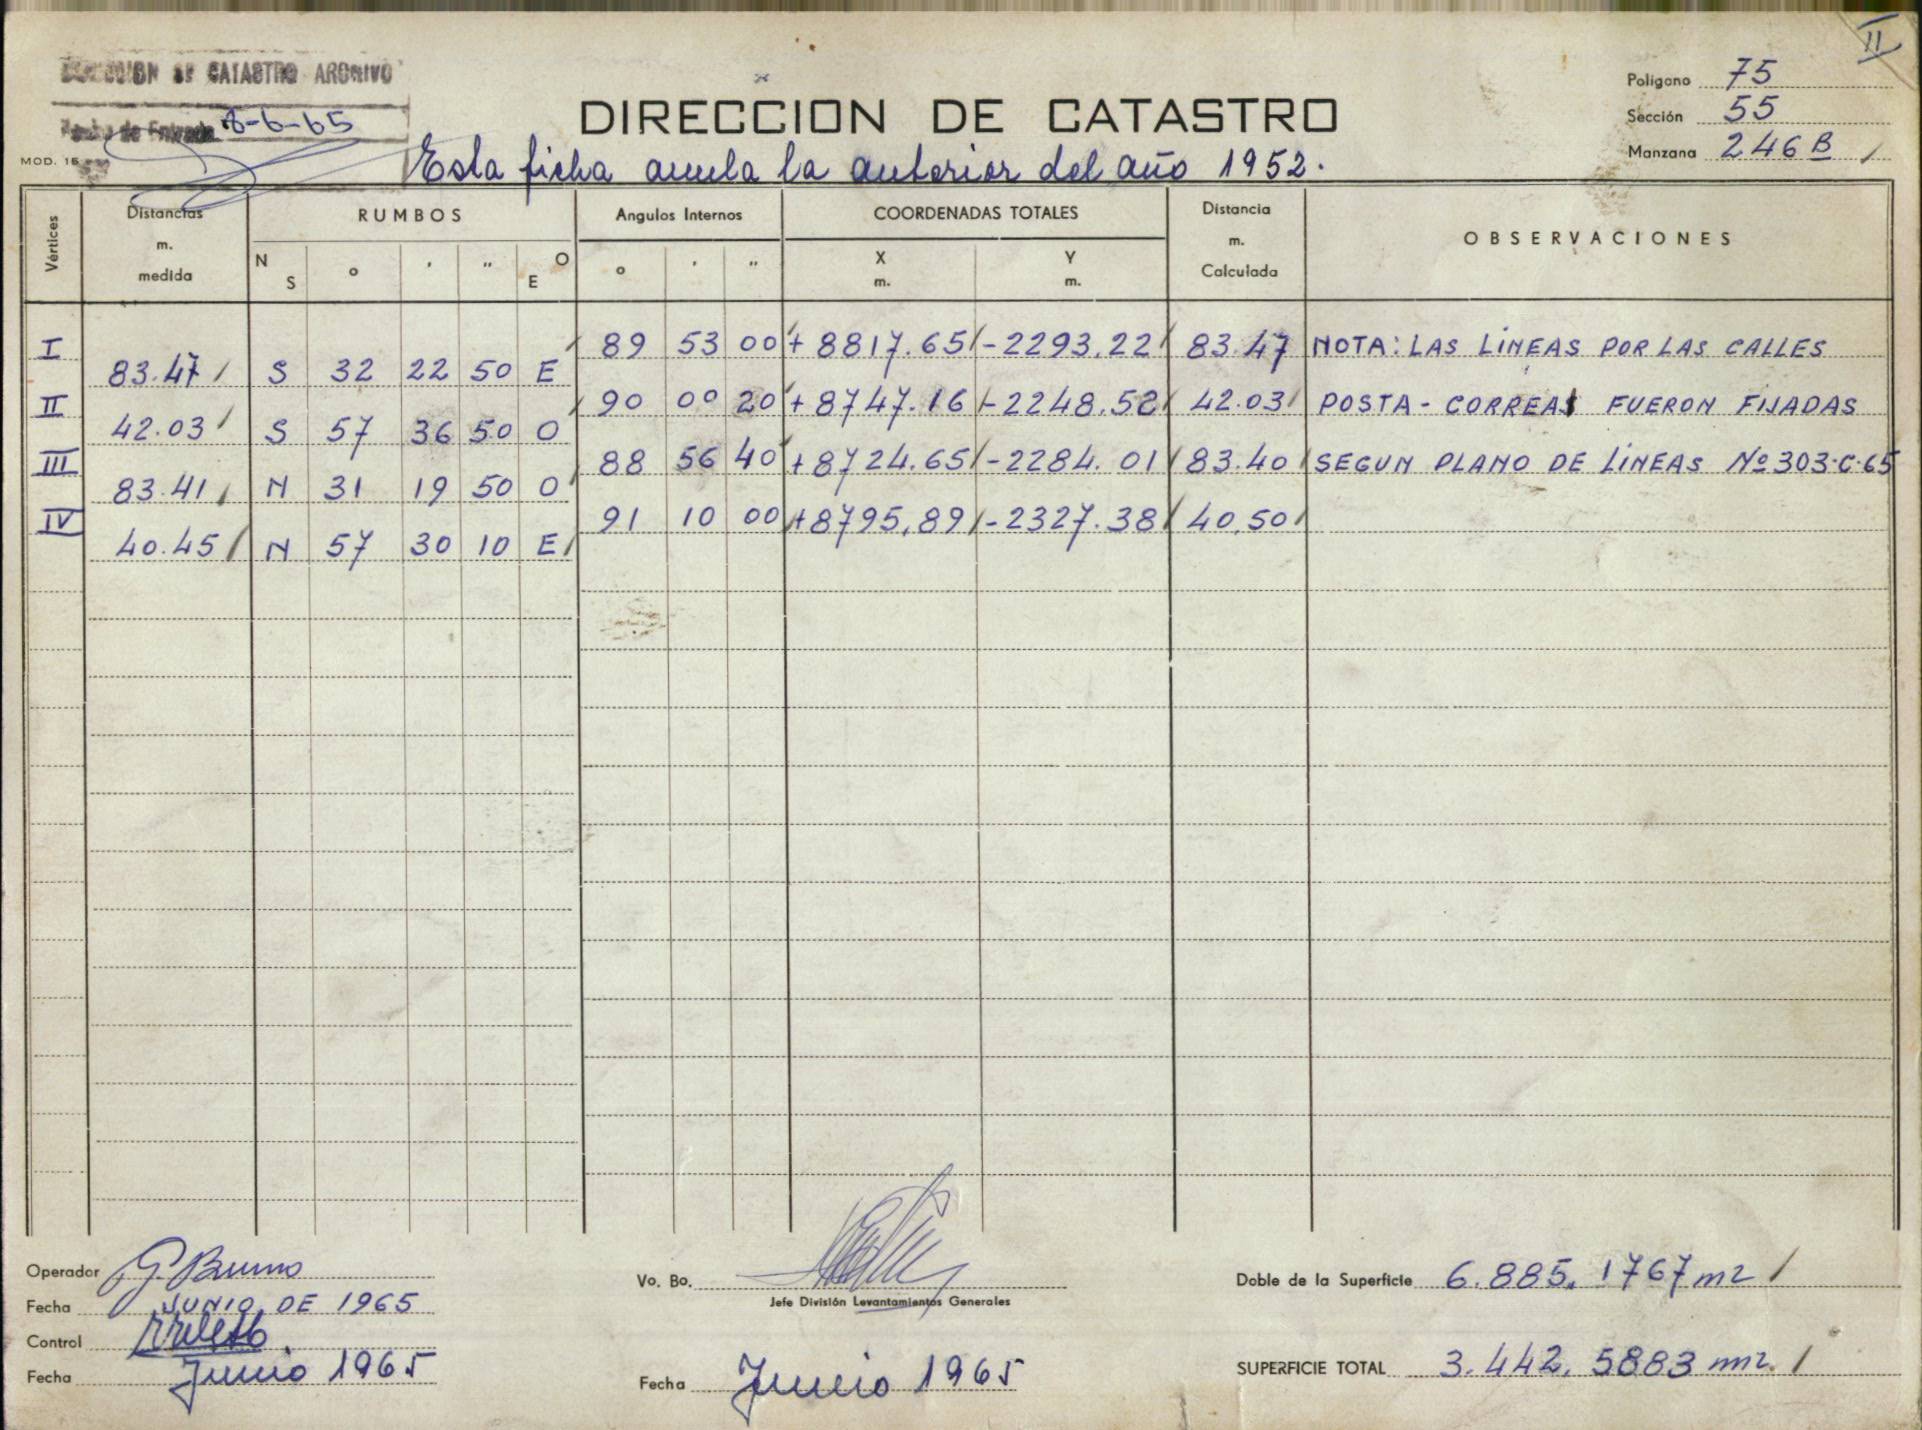 II
DIRECCION DE CATASTRO ARCHIVO
Fecha de Entrada 8-6-65
MOD. 15
DIRECCION DE CATASTRO
Esta ficha anula la anterior del año 1952.
Polígono 75
Sección 55
Manzana 246 B
Vértices Distancias m. medida RUMBOS Angulos Internos COORDENADAS TOTALES Distancia m. Calculada OBSERVACIONES
N S ° ' " O E ° ' " X m. Y m.
I 89 53 00 + 8817.65 - 2293.22 83.47 NOTA: LAS LÍNEAS POR LAS CALLES
83.47 S 32 22 50 E
II 90 00 20 + 8747.16 - 2248.52 42.03 POSTA - CORREAS FUERON FIJADAS
42.03 S 57 36 50 O
III 88 56 40 + 8724.65 - 2284.01 83.40 SEGUN PLANO DE LÍNEAS Nº 303-C-65
83.41 N 31 19 50 O
IV 91 10 00 + 8795,89 - 2327.38 40,50
40.45 N 57 30 10 E
Operador G. Bruno
Fecha JUNIO DE 1965
Control
Fecha Junio 1965
Vo. Bo.
Jefe División Levantamientos Generales
Fecha Junio 1965
Doble de la Superficie 6.885,1767 m2
SUPERFICIE TOTAL 3.442,5883 m2.